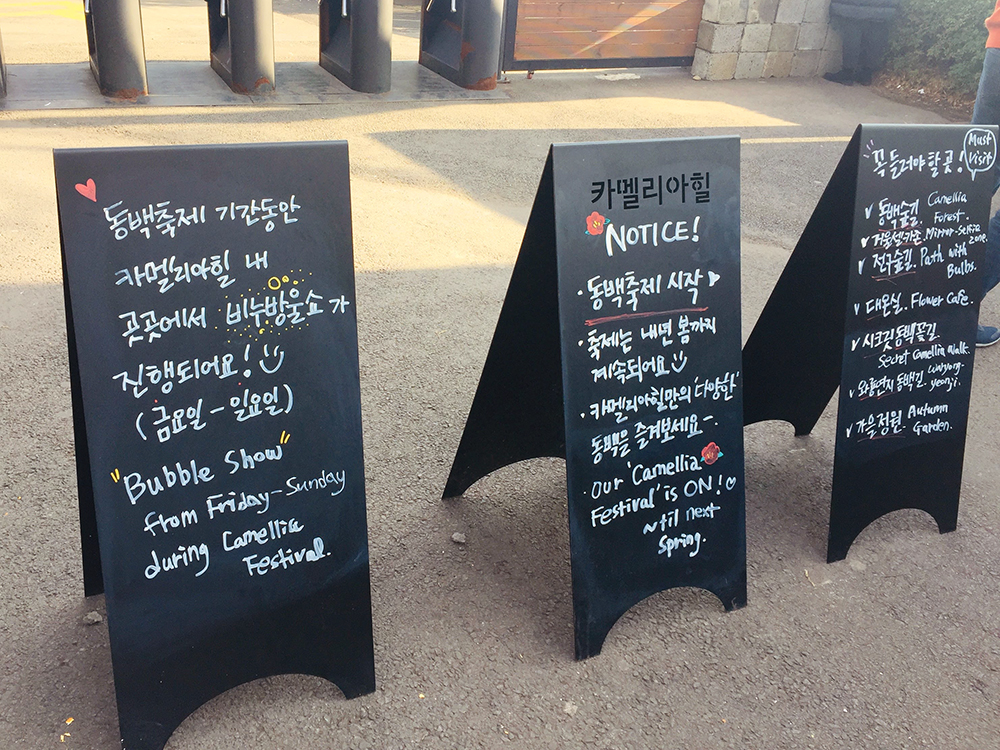 동백축제 기간동안
카멜리아힐 내
곳곳에서 비누방울쇼가
진행되어요!
(금요일-일요일)
"Bubble Show"
from Friday-Sunday
during Camellia
Festival.
카멜리아힐
NOTICE!
·동백축제 시작
·축제는 내년 봄까지
계속되어요
·카멜리아힐만의 '다양한'
동백을 즐겨보세요~
·Our 'Camellia
Festival' is ON!
~til next
Spring.
꼭 들러야 할 곳!
Must
Visit
동백숲길. Camellia
Forest.
거울셀카존. Mirror-Selfie
zone.
전구숲길. Path with
Bulbs.
대온실. Flower Cafe.
시크릿동백꽃길.
Secret Camellia Walk.
와룡연지 동백길. Waryong-
yeonji.
가을정원. Autumn
Garden.